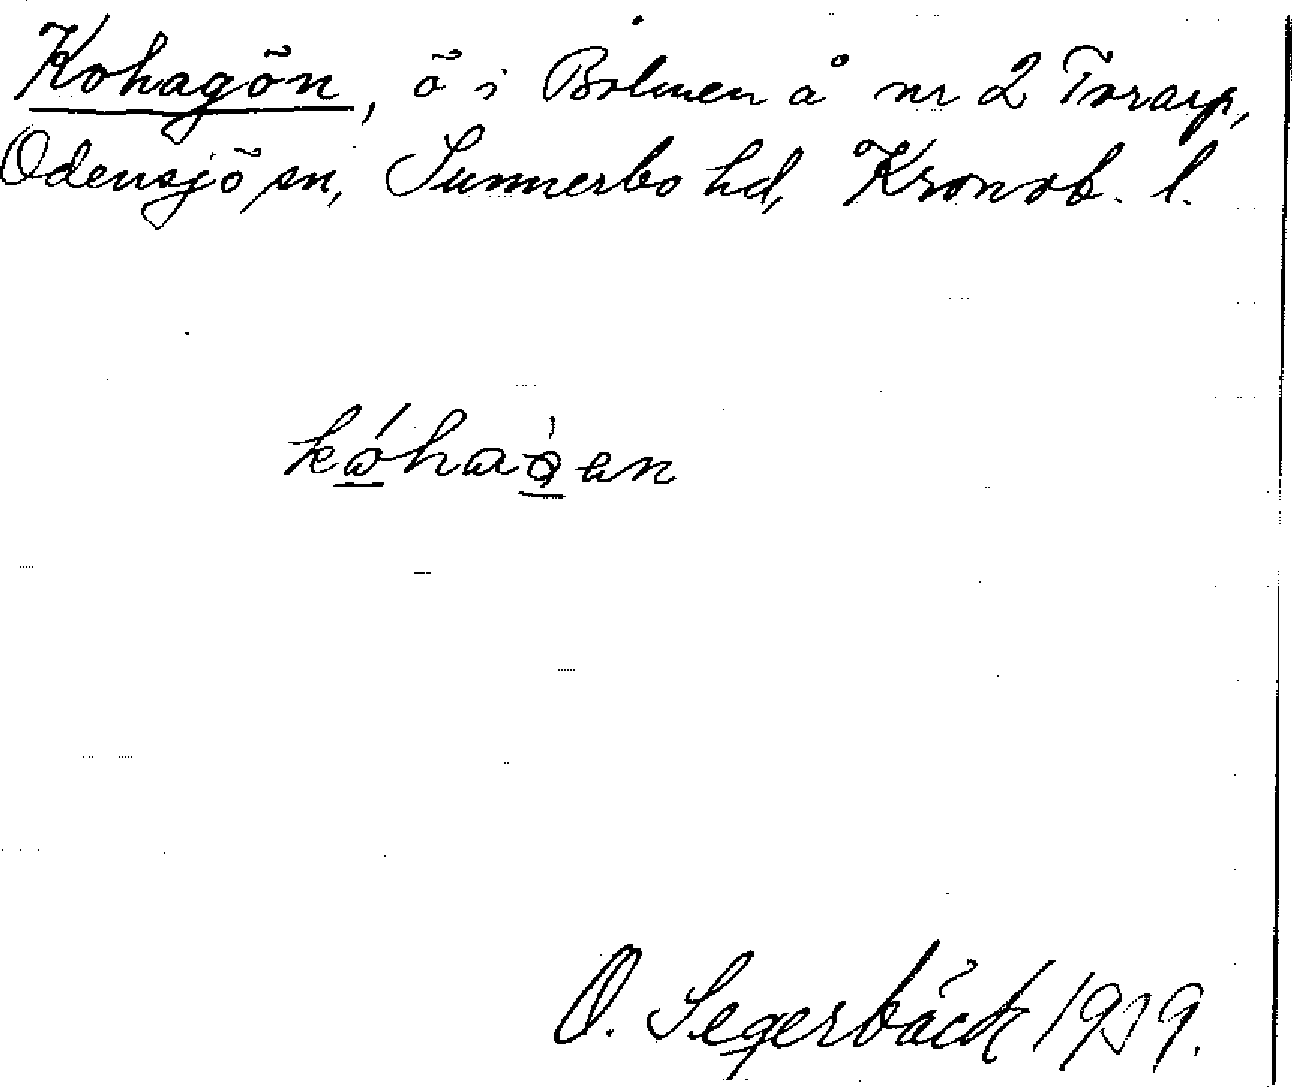 Kohagön, ö i Bolmen å nr 2 Torarp,
Odensjö sn, Sunnerbo hd, Kronob. l.
O. Segerbäck 1919.